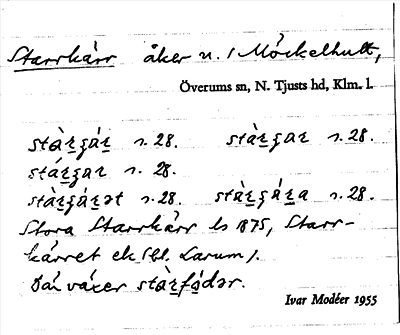 Starrkärr åker n. / Möckelhult,
Överums sn, N. Tjusts hd, Klm. l.
stàrʒár n. 28. stàrʒar n. 28.
stárʒar n. 28.
stàrʒárət n. 28. stàrʒára n. 28.
Stora Starrkärr ls 1875, Starr-
kärret ek (bl. Larum).
Där växer stàrfódər.
Ivar Modéer 1955